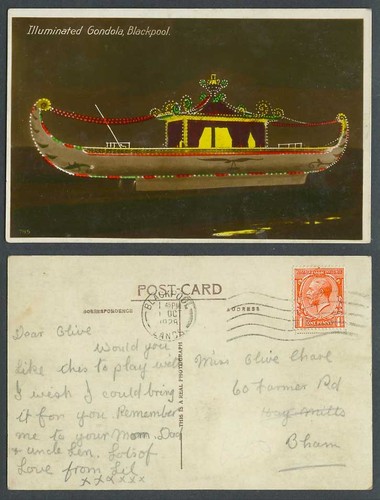 Illuminated Gondola, Blackpool.
POST-CARD
CORRESPONDENCE
ADDRESS
BLACKPOOL
OC
ONE PENNY
THIS IS A REAL PHOTOGRAPH
Dear Olive
Would you
like this to play with
I wish I could bring
it for you. Remember
me to your Mom, Dad
& uncle Len. Lots of
Love from Lil
x x x x x x
Miss Olive
60 Farmer Rd
Hay Mills
Bham